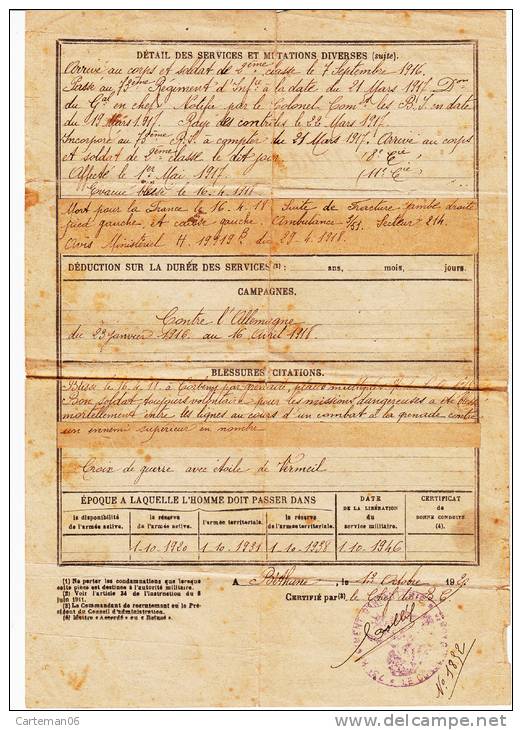 DÉTAIL DES SERVICES ET MUTATIONS DIVERSES (suite).
Arrivé au corps et soldat de 2ème classe le 7 Septembre 1916.
Passé au 73ème Régiment d'Infie à la date du 21 Mars 1917 Don
du Gal en chef. Notifié par le Colonel Comdt les B.I en date
du 19 Mars 1917. Rayé des contrôles le 22 Mars 1917.
Incorporé au 73ème R.I. à compter du 21 Mars 1917. Arrivé au corps
et soldat de 2ème classe le dit jour (8e Cie
Affecté le 1er Mai 1917 (11e Cie
Evacué blessé le 16.4.1918
Mort pour la France le 16.4.18 Suite de Fracture jambe droite
pied gauche et cuisse gauche. Ambulance 5/51. Secteur 214.
Avis Ministériel H. 19912B du 29.4.1918.
DÉDUCTION SUR LA DURÉE DES SERVICES (1) : ans, mois, jours.
CAMPAGNES.
Contre l'Allemagne
du 23 janvier 1916 au 16 Avril 1918.
BLESSURES CITATIONS.
Blessé le 16.4.18 à par grenade,
Bon soldat toujours volontaire pour les missions dangereuses a été blessé
mortellement entre les lignes au cours d'un combat à la grenade contre
un ennemi supérieur en nombre
Croix de guerre avec étoile de Vermeil
ÉPOQUE A LAQUELLE L'HOMME DOIT PASSER DANS
la disponibilité de l'armée active.
la réserve de l'armée active.
l'armée territoriale.
la réserve de l'armée territoriale.
DATE DE LA LIBÉRATION du service militaire.
CERTIFICAT DE BONNE CONDUITE (4)
1-10-1920 1-10-1931 1-10-1938 1-10-1946
(1) Ne porter les condamnations que lorsque
cette pièce est destinée à l'autorité militaire.
(2) Voir l'article 34 de l'instruction du 8
juin 1911.
(3) Le Commandant de recrutement ou le Pré-
sident du Conseil d'administration.
(4) Mettre « Accordé » ou « Refusé ».
A Béthune, le 13 Octobre 19
CERTIFIÉ par(3), le Chef
No 1892
Carteman06
delcampe.net